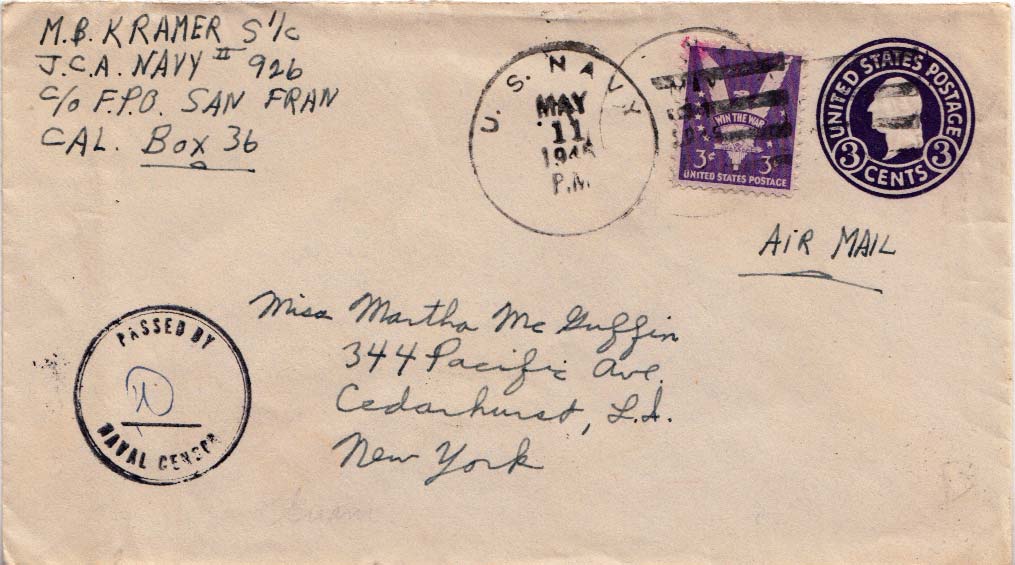 M.B. KRAMER S 1/c
J.C.A. NAVY II 926
c/o F.P.O. SAN FRAN
CAL. Box 36
U. S. NAVY
MAY
11
1945
P.M.
WIN THE WAR
3¢ 3¢
UNITED STATES POSTAGE
UNITED STATES POSTAGE
3 3
CENTS
AIR MAIL
PASSED BY
NAVAL CENSOR
Miss Martha McGuffin
344 Pacific Ave.
Cedarhurst, L.I.
New York